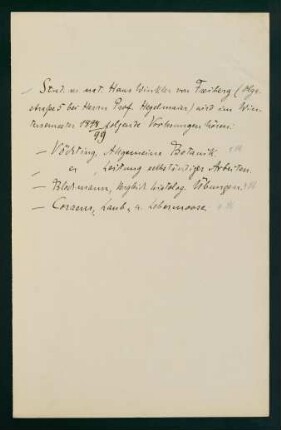 – Stud. rer. nat. Hans Winkler von Freiberg (Olga-
straße 5 bei Herrn Prof. Hegelmaier) wird im Win-
tersemester 1898/99 folgende Vorlesungen hören:
– Vöchting, Allgemeine Botanik
„ er, Leitung selbständiger Arbeiten.
– Blochmann, vergleich. histolog. Übungen
– Correns, Laub- u. Lebermoose